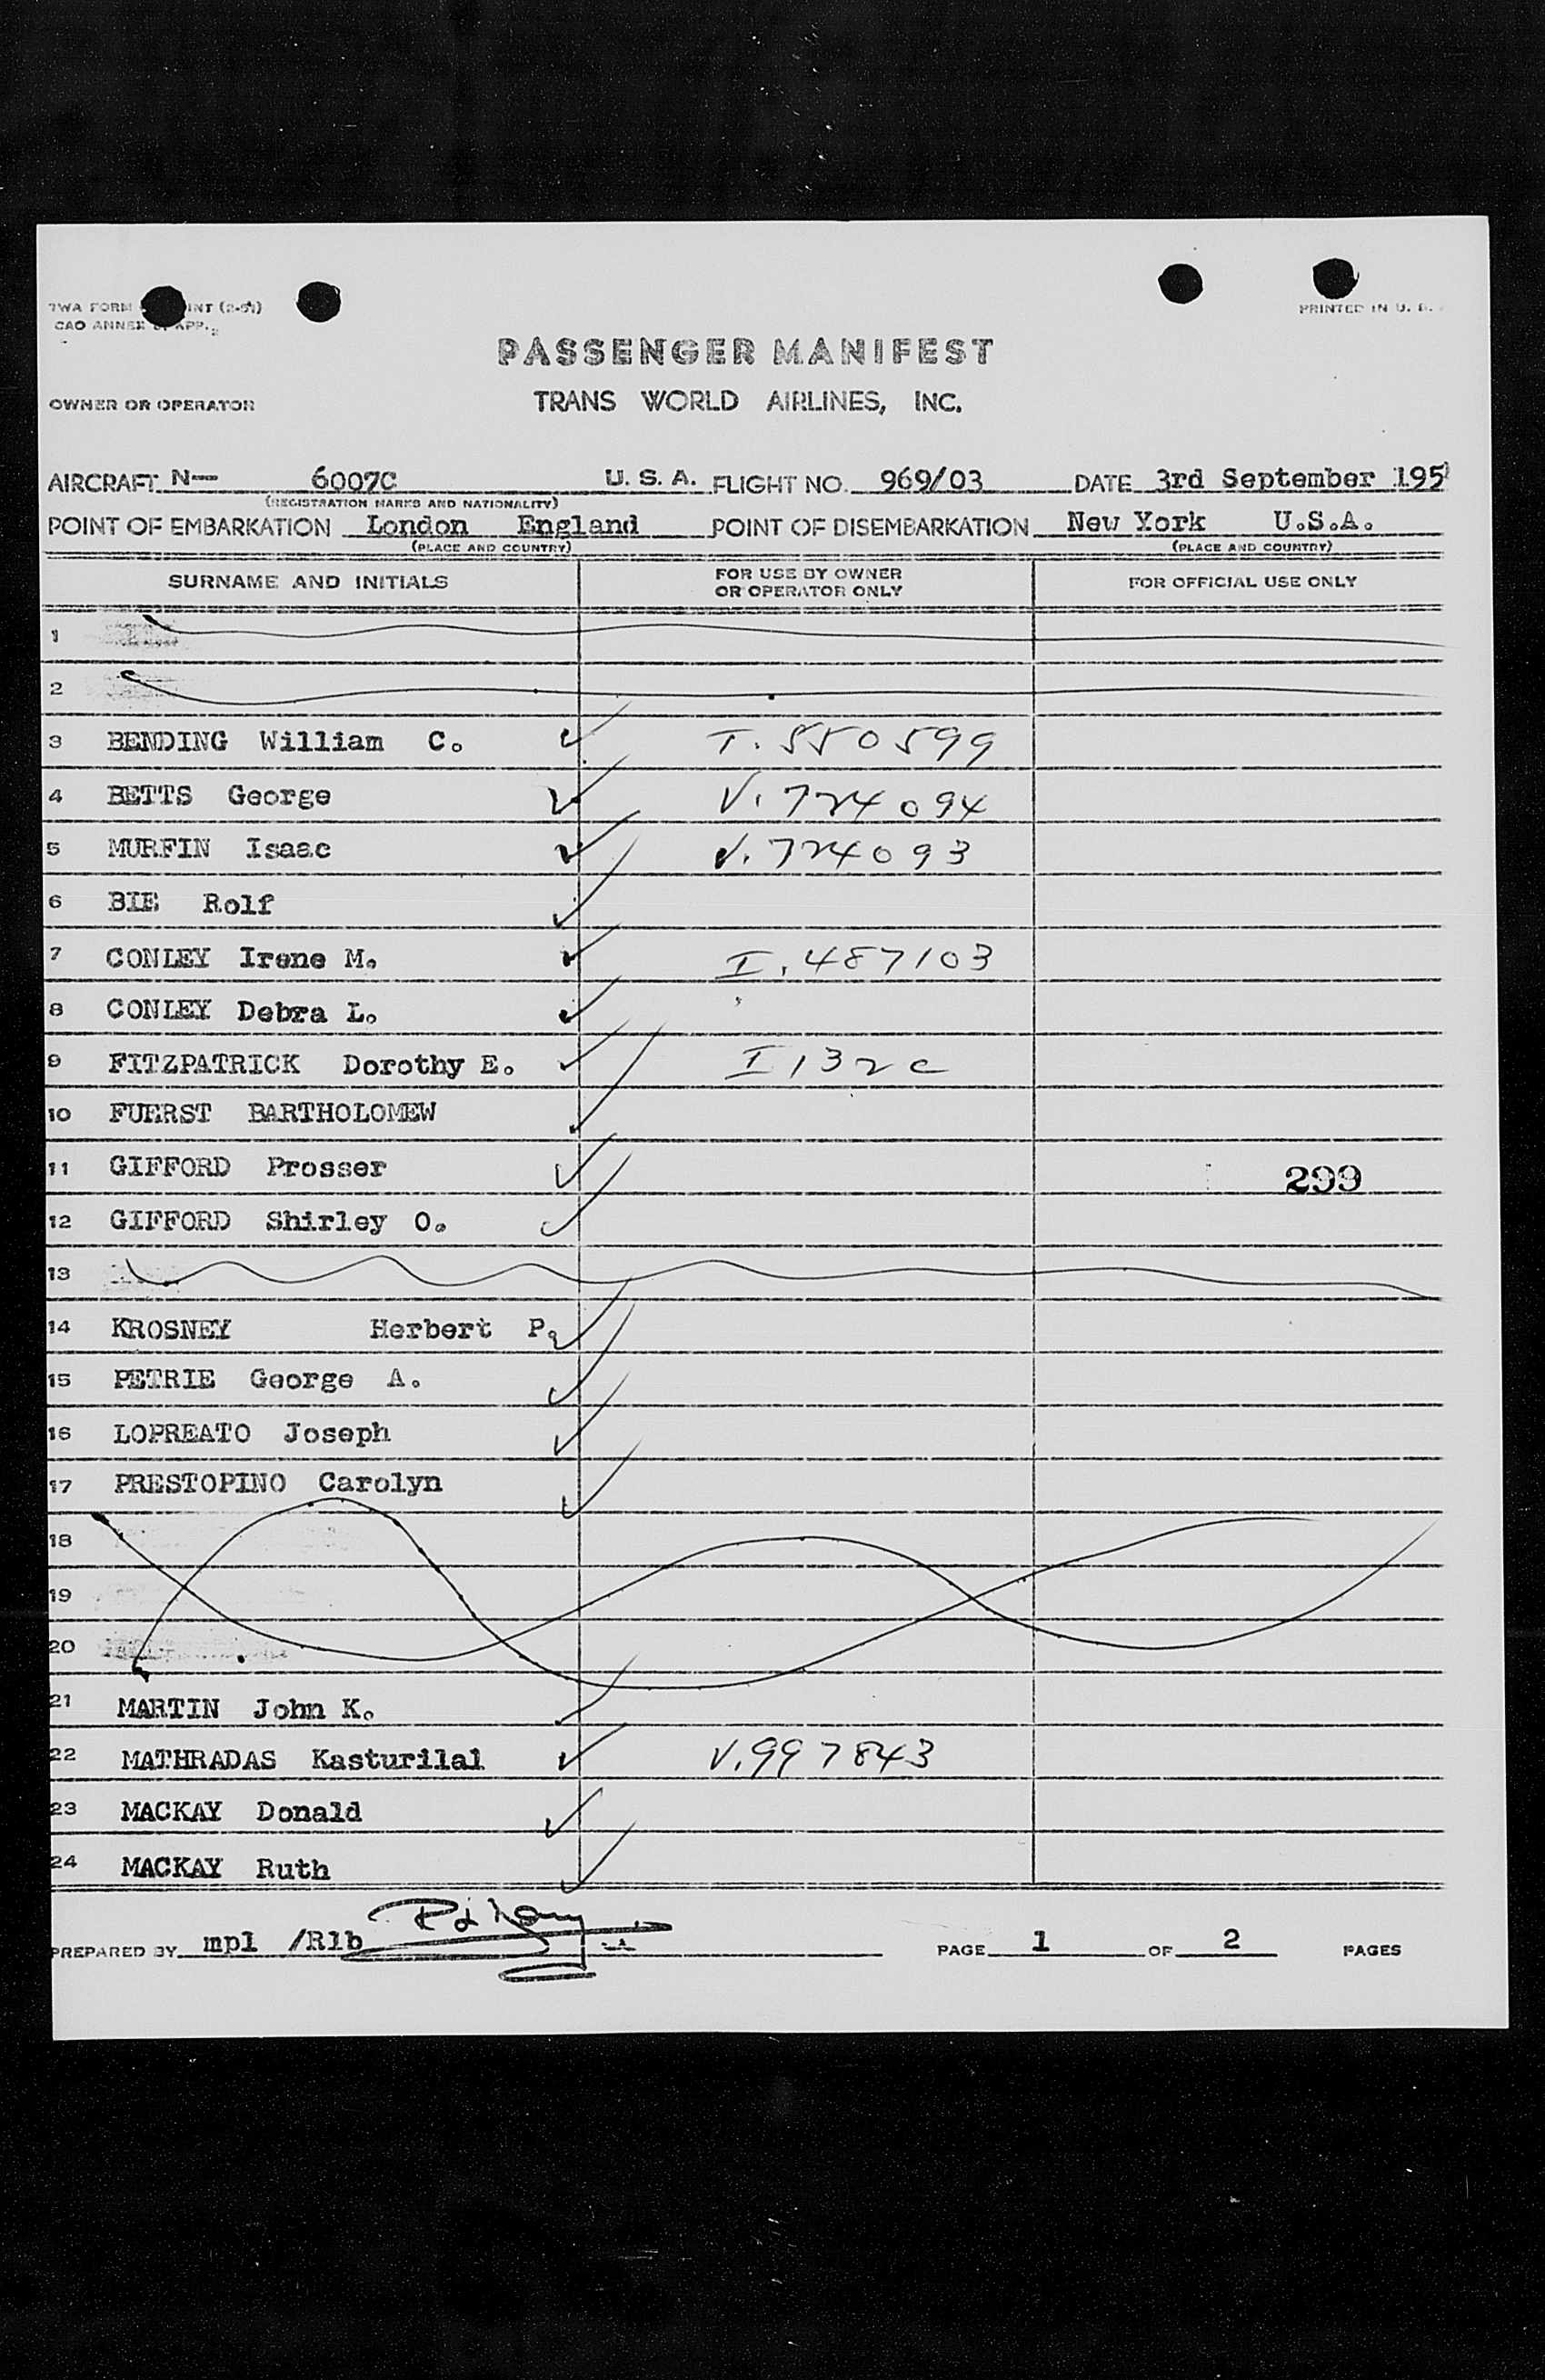 TWA FORM INT (2-51)
CAO ANNEX APP. 2
PRINTED IN U. S.
PASSENGER MANIFEST
OWNER OR OPERATOR TRANS WORLD AIRLINES, INC.
AIRCRAFT N— 6007C U. S. A. FLIGHT NO. 969/03 DATE 3rd September 195
(REGISTRATION MARKS AND NATIONALITY)
POINT OF EMBARKATION London England POINT OF DISEMBARKATION New York U.S.A.
(PLACE AND COUNTRY) (PLACE AND COUNTRY)
SURNAME AND INITIALS FOR USE BY OWNER OR OPERATOR ONLY FOR OFFICIAL USE ONLY
1
2
3 BENDING William C. ✓ T. 550599
4 BETTS George ✓ V. 724094
5 MURFIN Isaac ✓ V. 724093
6 BIE Rolf ✓
7 CONLEY Irene M. ✓ I. 487103
8 CONLEY Debra L. ✓
9 FITZPATRICK Dorothy E. ✓ I 132c
10 FUERST BARTHOLOMEW ✓
11 GIFFORD Prosser ✓ 299
12 GIFFORD Shirley O. ✓
13
14 KROSNEY Herbert P. ✓
15 PETRIE George A. ✓
16 LOPREATO Joseph ✓
17 PRESTOPINO Carolyn ✓
18
19
20
21 MARTIN John K. ✓
22 MATHRADAS Kasturilal ✓ V. 997843
23 MACKAY Donald ✓
24 MACKAY Ruth ✓
PREPARED BY mpl /Rlb PAGE 1 OF 2 PAGES